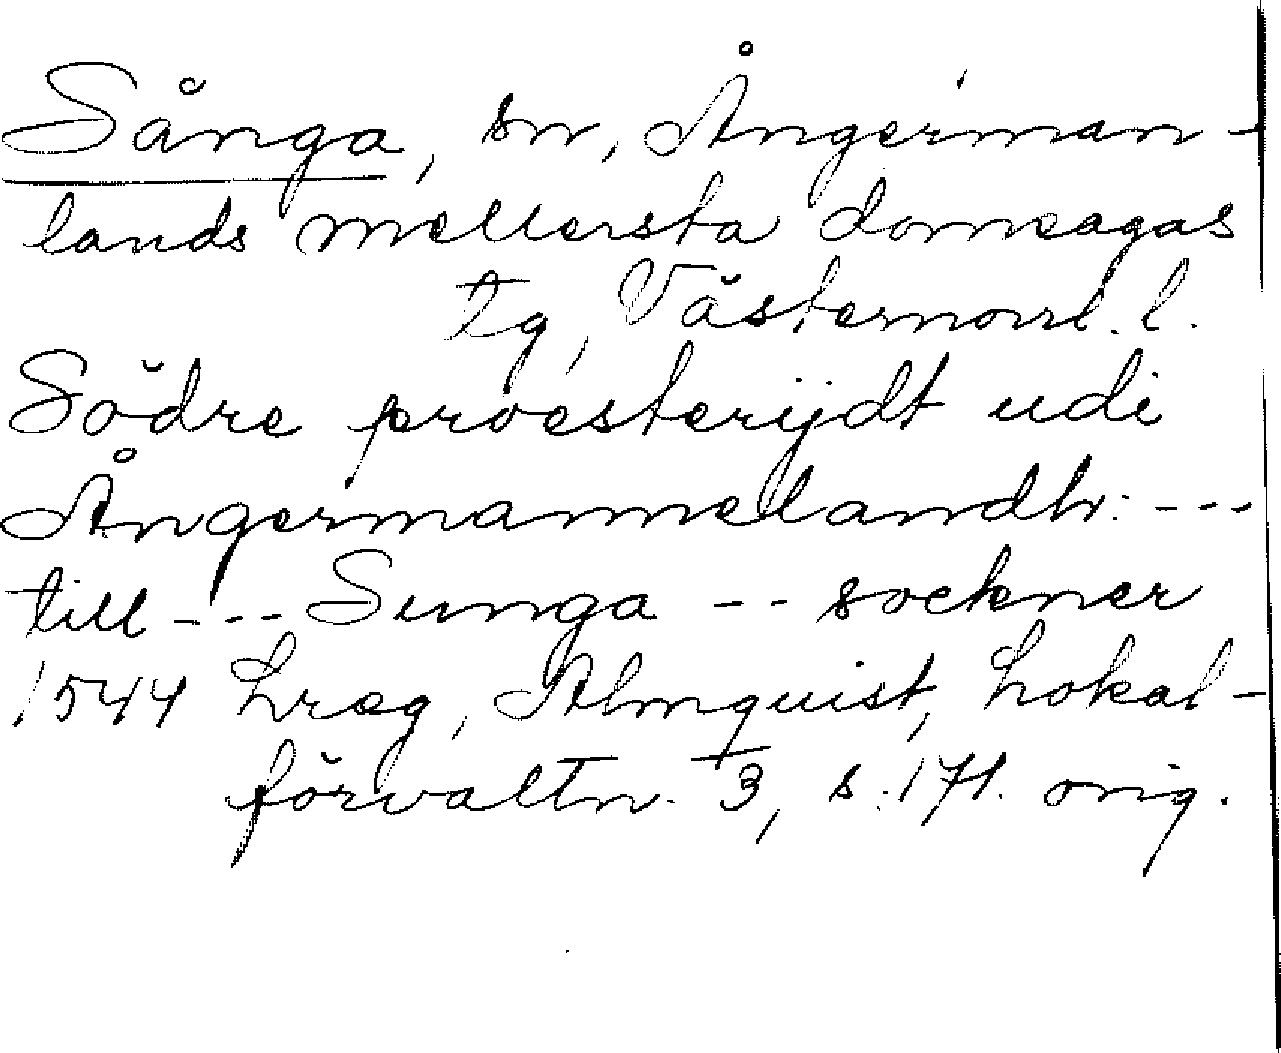 Sånga, sn, Ångerman-
lands mellersta domsagas
tg, Västernorrl. l.
Södre proesterijdt udi
Ångermannelandh: ---
till --- Sunga -- sockner
1544 Lreg, Almquist, Lokal-
förvaltn. 3, s. 171. orig.